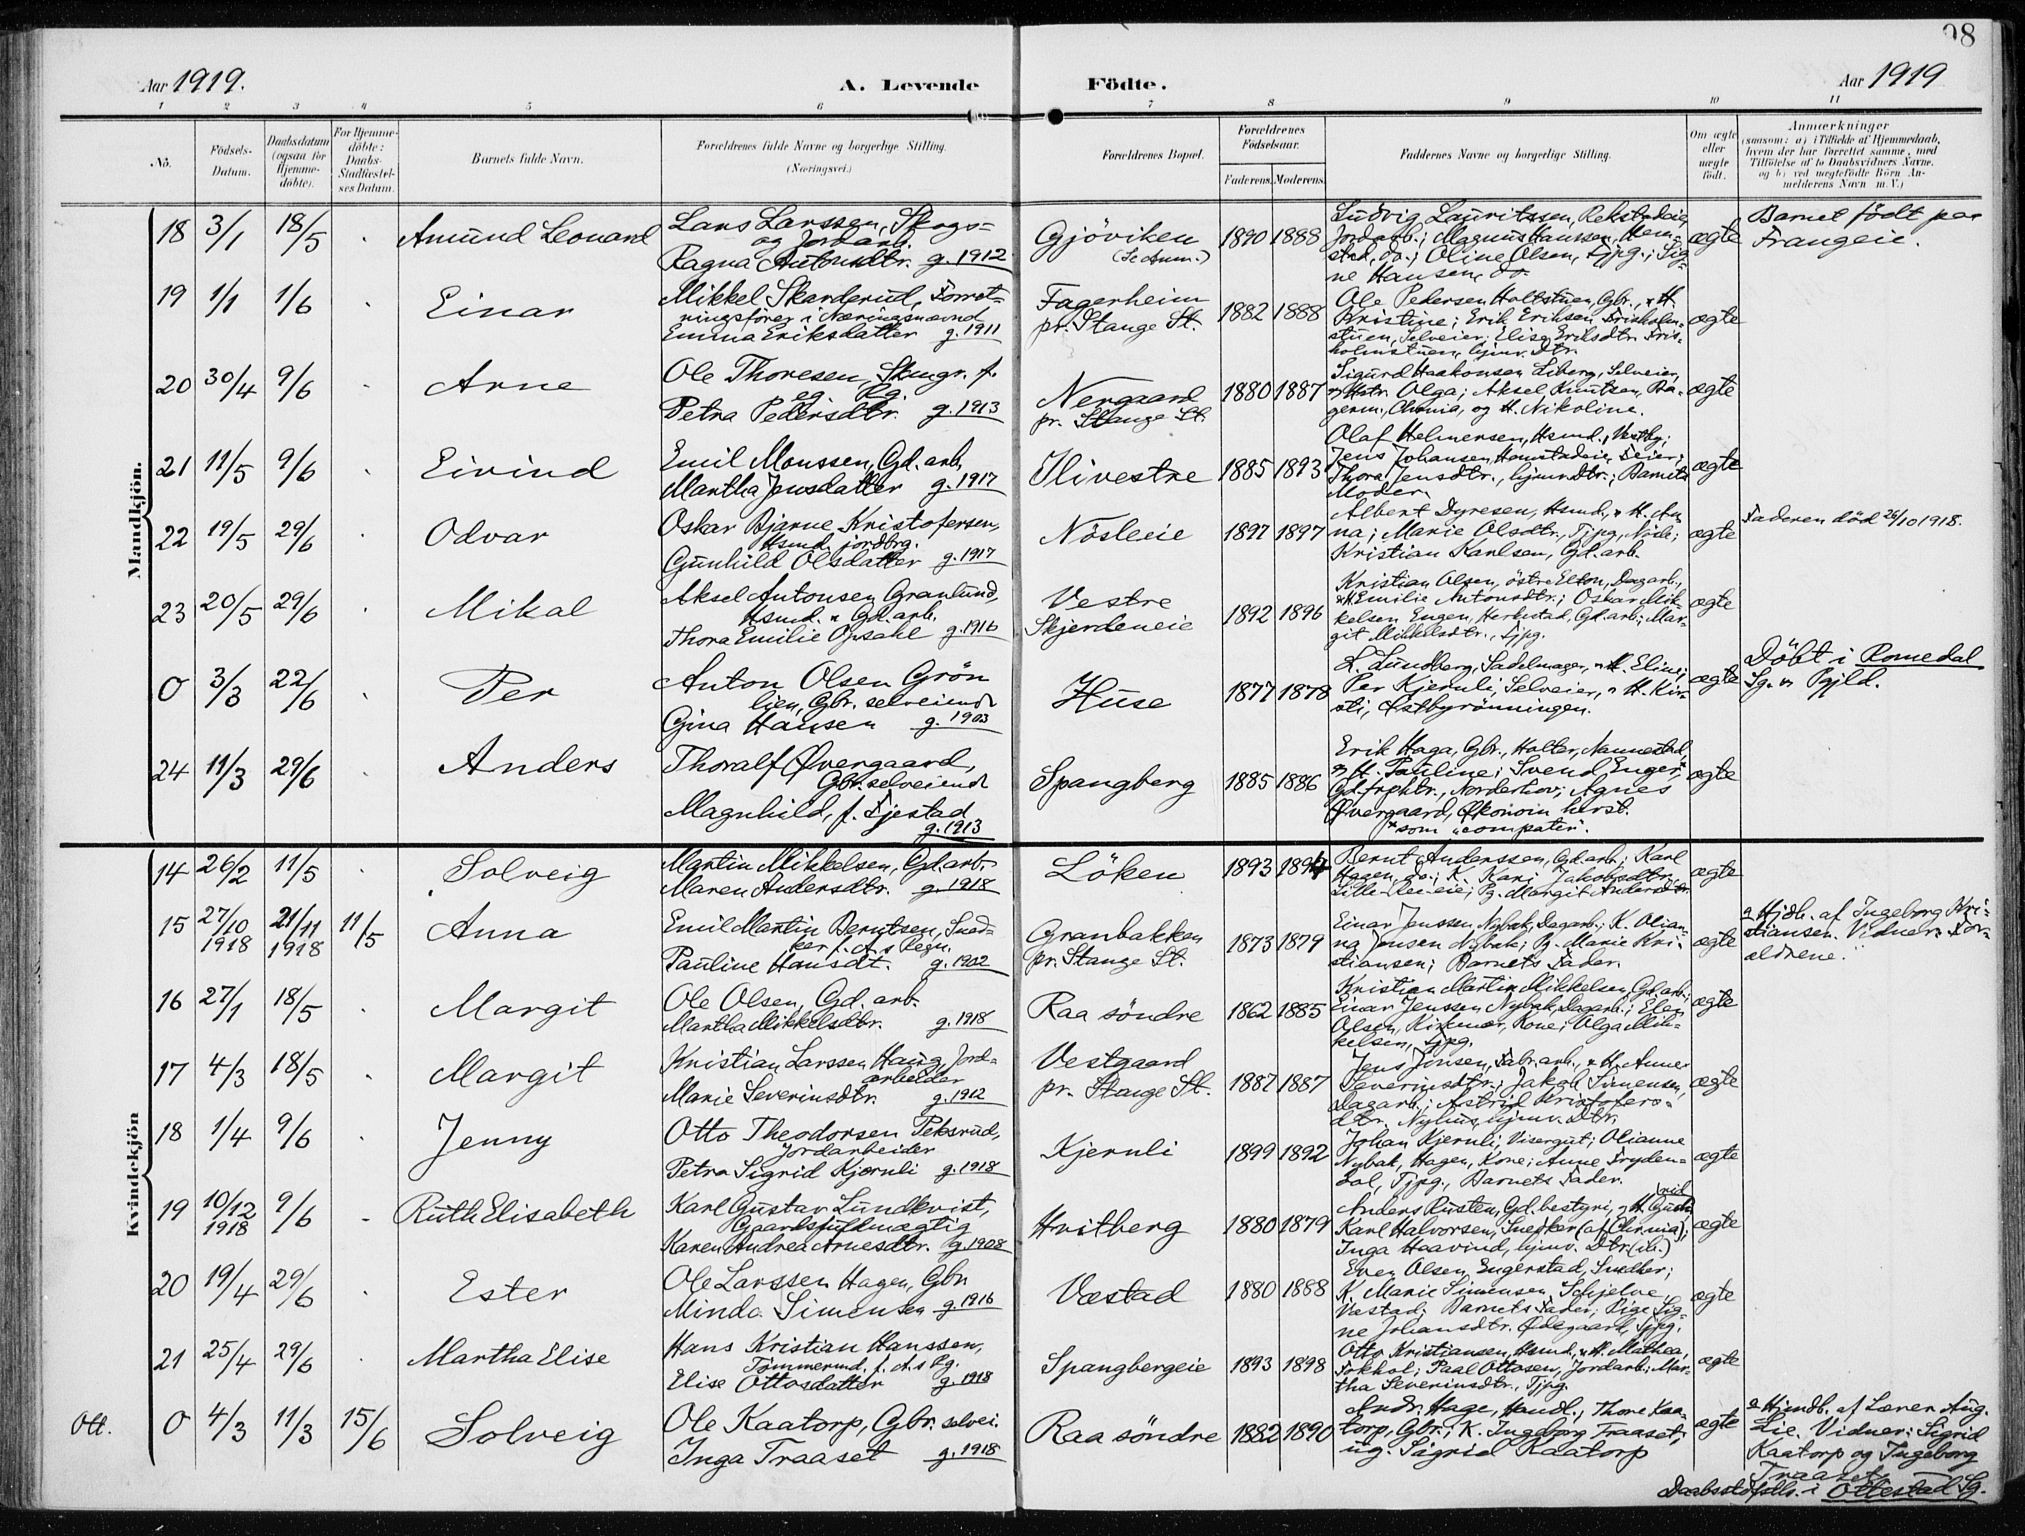 98
Aar 1919.
A. Levende
Födte.
Aar 1919
1 2 3 4 5 6 7 8 9 10 11
No.
Födsels-
Datum.
Daabsdatum
(ogsaa for
Hjemme-
döbte).
For Hjemme-
döbte:
Daabs-
Stadfæstel-
ses Datum.
Barnets fulde Navn.
Forældrenes fulde Navne og borgerlige Stilling.
(Næringsvei.)
Forældrenes Bopæl.
Forældrenes
Födselsaar.
Faderens. Moderens.
Faddernes Navne og borgerlige Stilling.
Om ægte
eller
uægte
födt.
Anmærkninger
(saasom: a) i Tilfælde af Hjemmedaab,
hvem der har forrettet samme, med
Tilföielse af to Daabsvidners Navne,
og b) ved uægtefödte Börn An-
melderens Navn m. V.)
Mandkjön.
18 3/1 18/5 Amund Leonard
Lars Larssen, Skogs-
og Jordarb.
Ragna Antonsdtr. g. 1912
Gjöviken
(Se Anm.)
1890 1888
Ludvig Lauritssen, Rekstadeie,
Jordarb.; Magnus Hanssen, Hem-
stad, do.; Oline Olsen, Tjpg.; Sig-
ne Hansen, do.
ægte
Barnet födt paa
Frangeie.
19 1/1 1/6 Einar
Mikkel Skarderud, Forret-
ningsförer i Næringsnævnd
Emma Eriksdatter g. 1911
Fagerheim
pr. Stange St.
1882 1888
Ole Pedersen Holtstuen, Gbr., & H.
Kristine; Erik Eriksen Frisholm-
stuen, Selveier; Elise Eriksdtr. Fris-
holmstuen, hjmv. Dtr.
ægte
20 30/4 9/6 Arne
Ole Thoresen, Skmgr. f.
eg. Rg.
Petra Pedersdtr. g. 1913
Nergaard
pr. Stange St.
1880 1887
Sigurd Haakonsen Liberg, Selveier,
& Hstr. Olga; Aksel Knutsen, Ba-
germ., Chrania, og H. Nikoline.
ægte
21 11/5 9/6 Eivind
Emil Monssen, Gd. arb.
Martha Jensdatter g. 1917
Ilivestre
1885 1893
Olaf Helmersen, Hsmd., Vestby;
Jens Johansen, Hemstadeie, Feier;
Thora Jensdtr., hjmv. Dtr.; Barnets
Moder.
ægte
22 19/5 29/6 Odvar
Oskar Bjarne Kristofersen,
Hsmd. jordbrg.
Gunhild Olsdatter g. 1917
Nösleie
1897 1897
Albert Dyresen, Hsmd., & H. An-
na; Marie Olsdtr., Tjpg., Nösle;
Kristian Karlsen, Gd. arb.
ægte
Faderen död 26/10 1918.
23 20/5 29/6 Mikal
Aksel Antonsen Granlund,
Hsmd. & Gd. arb.
Thora Emilie Opsahl g. 1916
Vestre
Skjerdeneie
1892 1896
Kristian Olsen, östre Elton, Dagarb.,
& H. Emilie Antonsdtr.; Oskar Mik-
kelsen Engen, Herkstad, Gd. arb.; Mar-
git Mikkelsdtr., Tjpg.
ægte
0 3/3 22/6 Per
Anton Olsen Grön
lien, Gbr. selveiende
Gina Hansen g. 1903
Huse
1877 1878
L. Lundberg, Sadelmager, & H. Eline;
Per Kjernli, Selveier, & H. Kir-
sti, Østbyrönningen.
ægte
Döbt i Romedal
Sg. & Pgjld.
24 11/3 29/6 Anders
Thoralf Øvergaard,
Gbr. selveiende
Magnhild, f. Fjestad
g. 1913
Spangberg
1885 1886
Erik Haga, Gbr., Holter, Nannestad,
& H. Pauline; Svend Enger,*
Gd. frphtr., Norderhov; Agnes
Övergaard, Økonom herst.
* som "compater".
ægte
Kvindekjön
14 26/2 11/5 Solveig
Martin Mikkelsen, Gd. arb.
Maren Andersdtr. g. 1918
Löken
1893 1894
Bernt Anderssen, Gd. arb.; Karl
Hagen, do.; K. Kari Jakobsdtr.
Lille Ileeie; Pg. Margit Andersdtr.
ægte
15 27/10 1918 21/11 1918 11/5 Anna
Emil Martin Berntsen, Sned-
ker f. A.s Regn.
Pauline Hansdt. g. 1902
Granbakken
pr. Stange St.
1873 1879
Einar Jenssen, Nybak, Dagarb.; K. Olian-
na Jensen Nybak; Pg. Marie Kri-
stiansen; Barnets Fader.
ægte
a Hjdb. af Ingeborg Kri-
stiansen. Vidner: For-
ældrene.
16 27/1 18/5 Margit
Ole Olsen, Gd. arb.
Martha Mikkelsdtr. g. 1918
Raa söndre
1862 1885
Kristian Martin Mikkelsen, Gd. arb.;
Einar Jenssen Nybak, Dagarb.; Elen
Olsen, Kirkenær, Kone; Olga Mik-
kelsen, Tjpg.
ægte
17 4/3 18/5 Margit
Kristian Larssen Haug, Jord-
arbeider
Marie Severinsdtr. g. 1912
Vestgaard
pr. Stange St.
1887 1887
Jens Jensen, Fabr. arb., & H. Anne
Severinsdtr.; Jakob Simensen,
Dagarb.; Astrid Kristofers-
dtr. Nyhus, hjmv. Dtr.
ægte
18 1/4 9/6 Jenny
Otto Theodorsen Peksrud,
Jordarbeider
Petra Sigrid Kjærnli g. 1918
Kjernli
1899 1892
Johan Kjernli, Visergut; Olianne
Nybak, Hagen, Kone; Anne Fryden-
dal, Tjpg., Barnets Fader.
ægte
19 10/12 1918 9/6 Ruth Elisabeth
Karl Gustav Lundkvist,
Gaardsfuldmægtig
Karen Andrea Arnesdtr. g. 1908
Hvitberg
1880 1879
Anders Rusten, Gd. bestyri, & H. Gud
rid
Karl Halvorsen, Snedker (af Chrania);
Inga Haavind, hjmv. Dtr. (ib.)
ægte
20 19/4 29/6 Ester
Ole Larssen Hagen, Gbr.
Minda Simensen g. 1916
Væstad
1880 1888
Even Olsen, Engerstad, Snedker;
K. Marie Simensen, Schjelve,
Væstad; Barnets Fader; Pige Sig-
ne Johansdtr. Ødegaard, Tjpg.
ægte
21 25/4 29/6 Martha Elise
Hans Kristian Hanssen,
Tömmermd. f. A.s Rg.
Elise Ottosdatter g. 1918
Spangbergeie
1893 1898
Otto Kristiansen, Hsmd., & H. Mathea,
Fokhol; Paal Ottosen, Jordarb.; Mar-
tha Severinsdtr., Tjpg.
ægte
Ott. 0 4/3 11/3 15/6 Solveig
Ole Kaatorp, Gbr. selvei.
Inga Traaset g. 1918
Raa söndre
1882 1890
Andr. Hage, Handl.; Thore Kaa-
torp, Gbr.; K. Ingeborg Traaset;
ug. Sigrid Kaatorp
ægte
a Hjmdb. af Lærer Aug.
Lie. Vidner: Sigrid
Kaatorp og Ingeborg
Traaset.
Daabsstadfstlls. i Ottestad Sg.